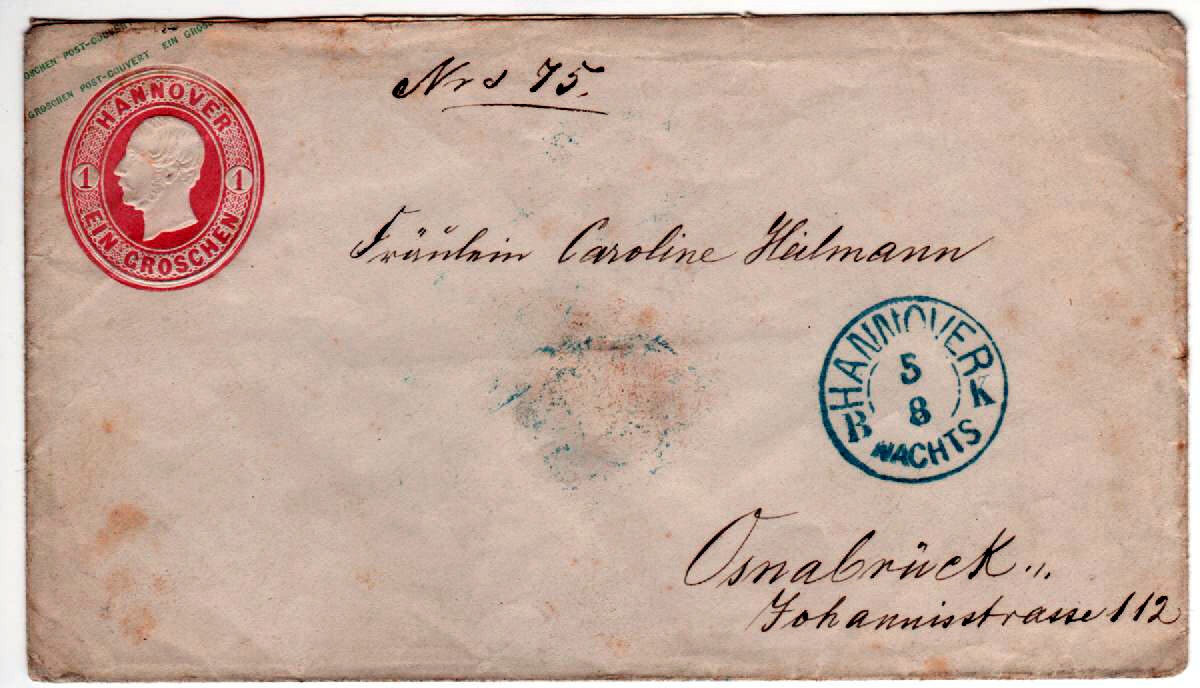 OSCHEN POST-COUVERT EIN GROSC
GROSCHEN POST-COUVERT EIN GROS
HANNOVER
1 1
EIN GROSCHEN
75.
Fräulein Caroline Heilmann
HANNOVER
5
8
B K
NACHTS
Osnabrück
Johannisstrasse 112